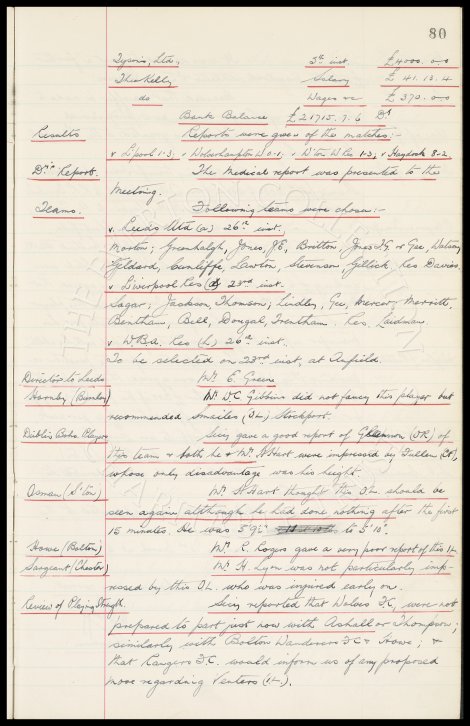 80
Tysons, Ltd., 3rd inst. £4000. 0-0
Theo Kelly Salary £ 41. 13. 4
do Wages &c £ 370. 0-0
Bank Balance £21715. 7. 6 Dr
Results Reports were given of the matches:-
v L'pool 1-3; v Wolverhampton W 0-1; v W'ton W Res 1-3; v Haydock 8-2.
Drs Report. The Medical report was presented to the
Meeting.
Teams. Following teams were chosen:-
v. Leeds Utd (a) 26th inst.
Morton; Greenhalgh, Jones, J.E, Britton, Jones T.G. or Gee, Watson,
Geldard, Cunliffe, Lawton, Stevenson, Gillick, Res Davies
v Liverpool Res (a) 23rd inst.
Sagar; Jackson, Thomson; Lindley, Gee, Mercer; Merritt,
Bentham, Bell, Dougal, Trentham. Res. Laidman.
v WBA. Res (h.) 26th inst.
To be selected on 23rd inst, at Anfield.
Directors to Leeds Mr. E. Green
Hornby (Burnley) Mr. W.C. Gibbins did not fancy this player but
recommended Smailes (I.L) Stockport.
Dublin Bohs. Players Secy gave a good report of (I.R) of
this team & both he & Mr. N. Hart were impressed by Cullen
whose only disadvantage was his height.
Osman (S'ton) Mr. N. Hart thought this I.L. should be
seen again, although he had done nothing after the first
15 minutes. He was 5' 9½" to 5' 10".
Howe (Bolton) Mr. R. Rogers gave a very poor report of this
Sargeant (Chester) Mr. H. Lyon was not particularly imp-
ressed by this I.L. who was injured early on.
Review of Playing Strength. Secy reported that Wolves F.C, were not
prepared to part just now with Ashall or Thompson;
similarly with Bolton Wanderers F.C & Howe; &
that Rangers F.C. would inform us of any proposed
move regarding Venters (I.L.).